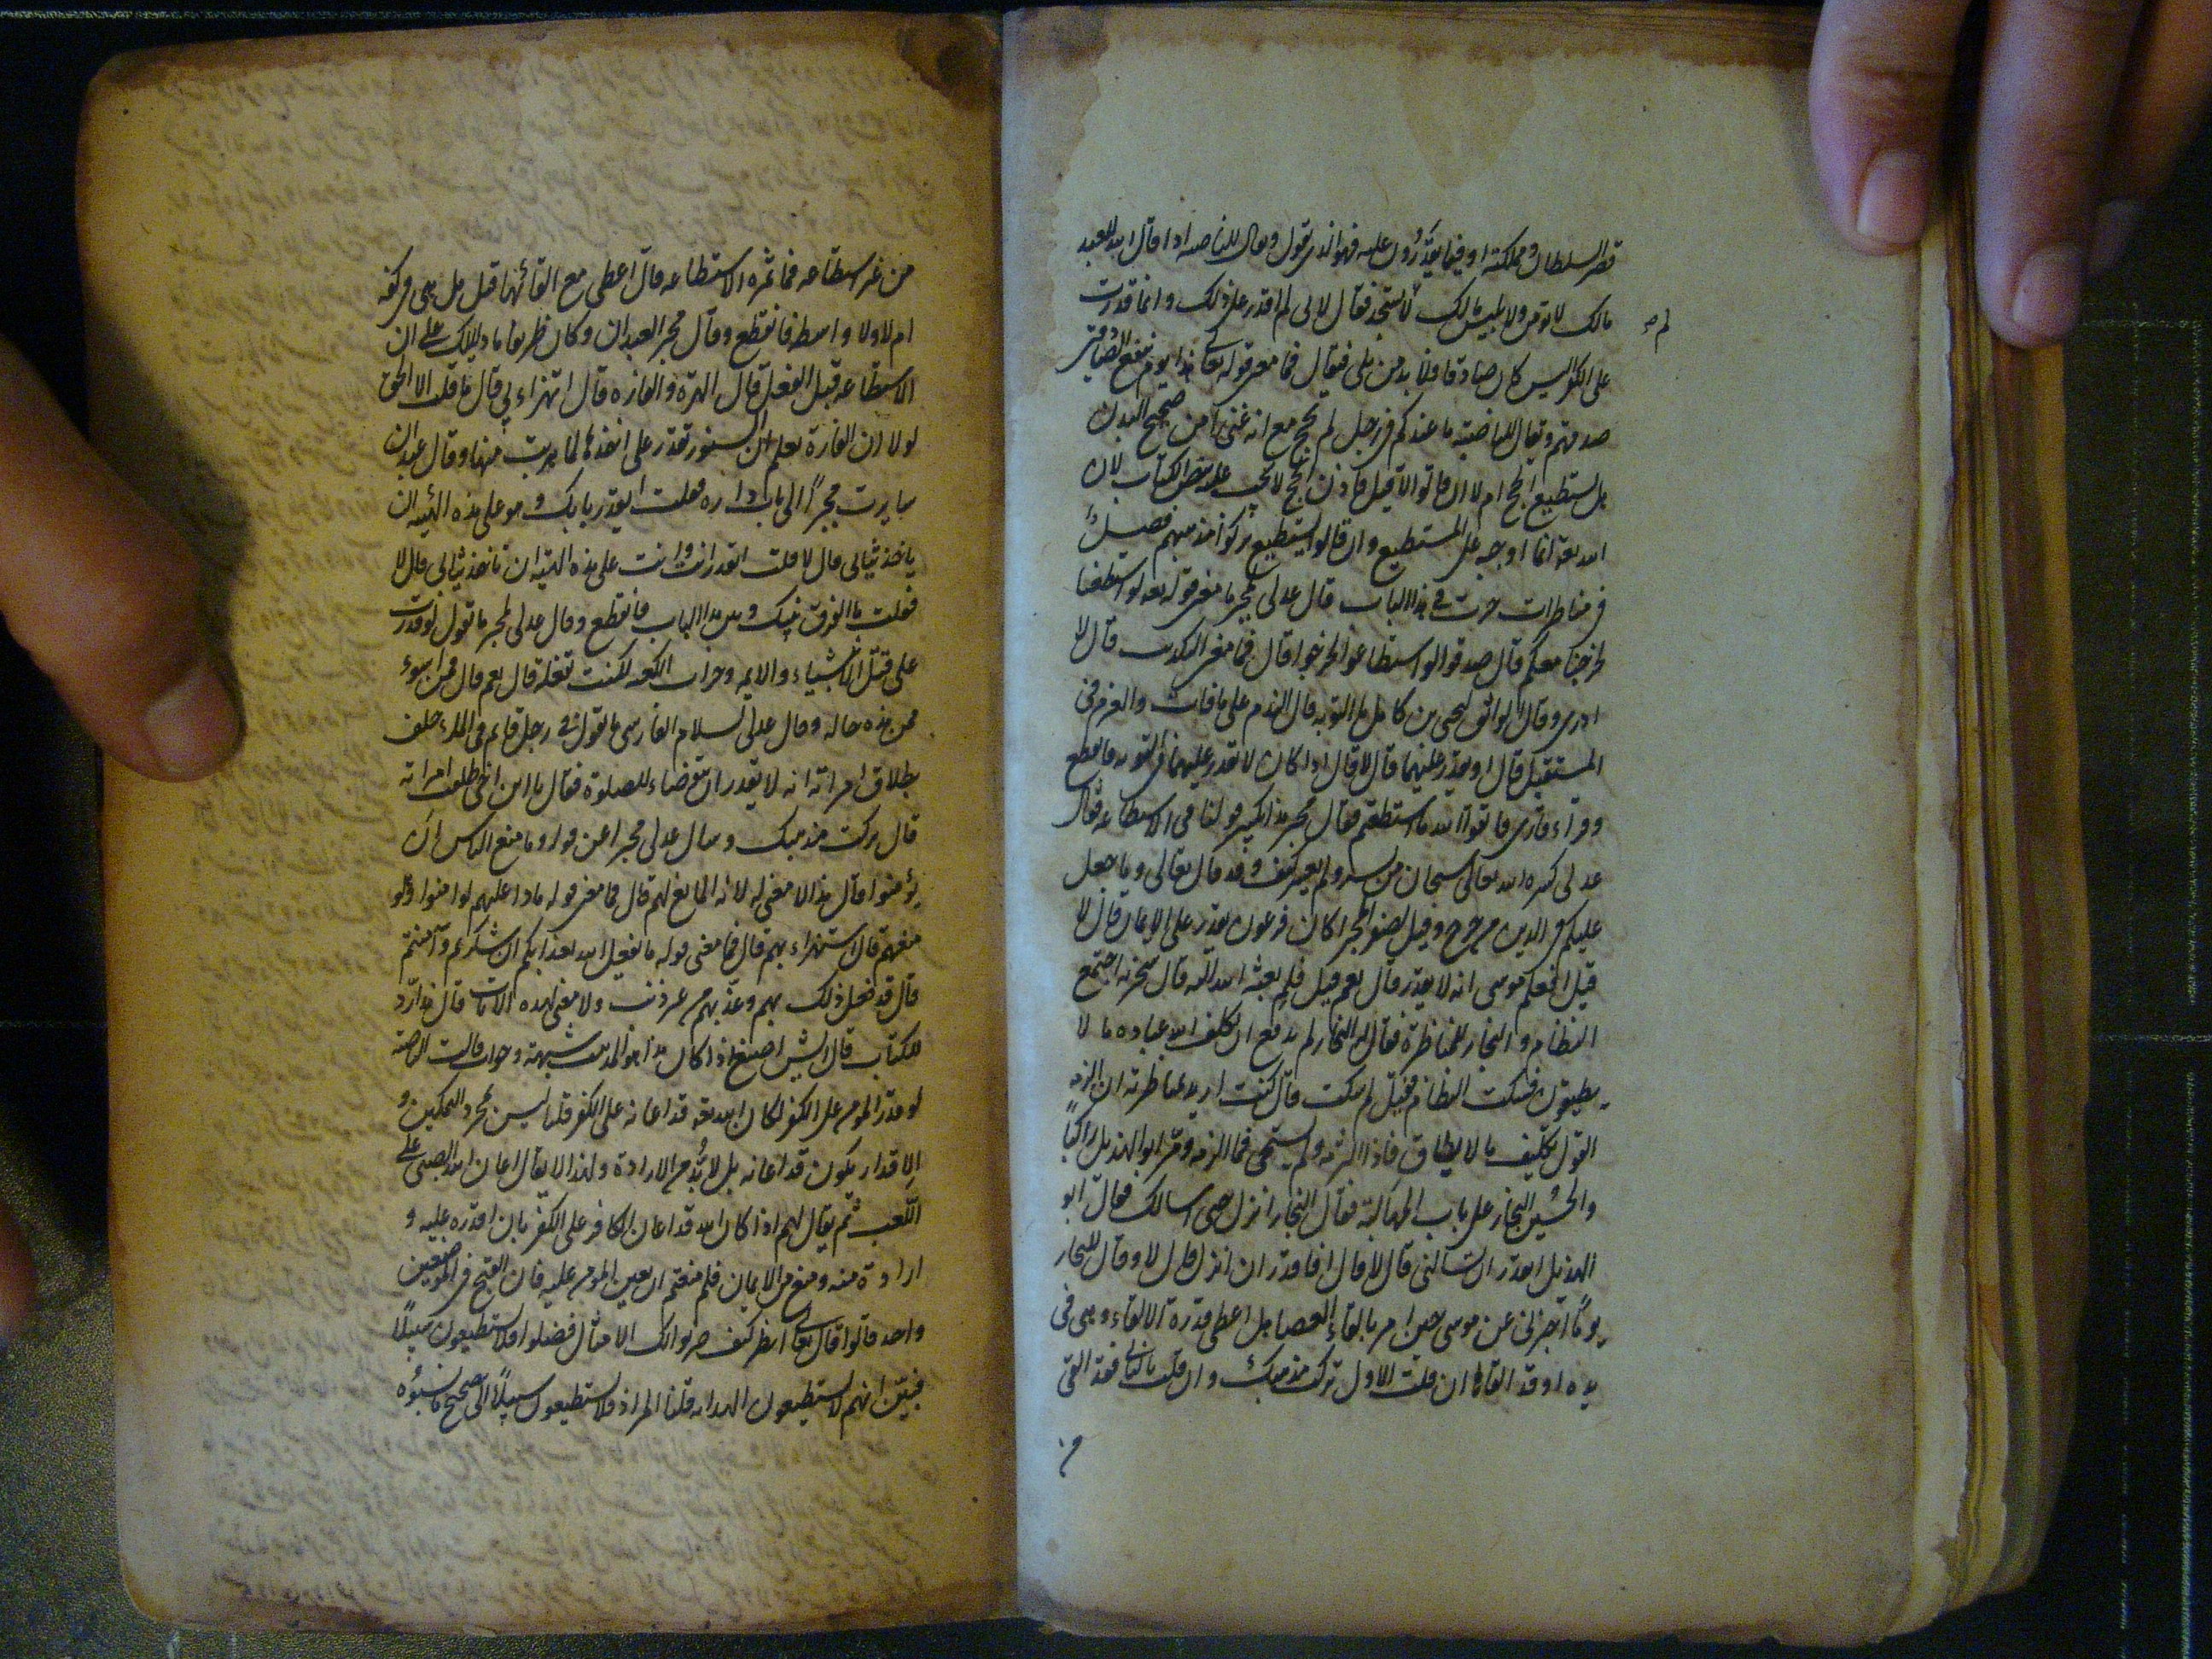 قصر السلطان ومملكته او فيما يقدرون عليه فهو الذي نقول ويقال للناصبه اذا قال الله للعبد
مالك لا تؤمن ولا بليس مالك ألا تسجد فقال لاني لم اقدر على ذلك وانما قدرت
لم صح
على الكفر اليس كان صادقا فلا بد من بلى فيقال فما معنى قوله تعالى هذا يوم ينفع الصادقين
صدقهم ويقال للناصبة ما عندكم في رجل لم يحج مع انه غني آمن صحيح البدن
هل يستطيع الحج ام لا فان قالوا لا قيل فاذن الحج لا يجب عليه بنص الكتاب لان
الله تعالى انما اوجبه على المستطيع وان قالوا يستطيع تركوا مذهبهم فصل
في مناظرات جرت في هذا الباب قال عدلي لمجبر ما معنى قوله تعالى لو استطعنا
لخرجنا معكم قال صدقوا لو استطاعوا لخرجوا قال فما معنى التكذيب قال لا
ادري وقال الواثق ليحيى بن كامل ما التوبه قال الندم على ما فات والعزم في
المستقبل قال او يقدر عليهما قال لا قال اذا كان لا يقدر عليهما فما التوبه فانقطع
وقراء قارئ فاتقوا الله ما استطعتم فقال مجبر هذا يكسر قولنا في الاستطاعه فقال
عدلي كسره الله تعالى سبحان من يسر ولم يعسر كيف وقد قال تعالى وما جعل
عليكم في الدين من حرج وقيل لصفر المجبر اكان فرعون يقدر على الايمان قال لا
قيل افعلم موسى انه لا يقدر قال نعم قيل فلم بعثه الله اليه قال سخر به اجتمع
النظام والنجار للمناظرة فقال له النجار لم يدفع ان يكلف الله عباده ما لا
يطيقون فسكت النظام فقيل لم سكت قال كنت اريد بمناظرته ان الزمه
القول بتكليف ما لا يطاق فاذا التزمه ولم يستحي فما الزمه ومر ابو الهذيل راكبا
والحسين النجار على باب المهالبة فقال النجار انزل حتى اسالك فقال ابو
الهذيل اتقدر ان تسالني قال لا قال افاقدر ان انزل قال لا وقال للنجار
يوما اخبرني عن موسى حين امر بالقاء العصا هل اعطي قدرة الالقاء وهي في
يده او قد القاها ان قلت الاول تركت مذهبك وان قلت بالثاني فقد القى
من
من غير استطاعه فما ثمرة الاستطاعه قال اعطي مع القائها قيل هل هي في كفه
ام لا ولا واسطه فانقطع وقال مجبر لعبدان وكان ظريفا ما دليلك على ان
الاستطاعه قبل الفعل قال الهرة والفاره قال اتهزاء بي قال ما قلت الا الحق
لولا ان الفارة تعلم ان السنور تقدر على اخذها لما هربت منها وقال عبدان
سايرت مجبرا الى باب داره فقلت ايقدر بابك وهو على هذه الهيئه ان
ياخذ ثيابي قال لا قلت افتقدر انت وانت على هذه الهيئه ان تاخذ ثيابي قال لا
فقلت ما الفرق بينك وبين هذا الباب فانقطع وقال عدلي لمجبر ما تقول لو قدرت
على قتل الانبياء والايمه وخراب الكعبه لكنت تفعله قال نعم قال فمن اسوء
ممن هذه حاله وقال عدلي لسلام الفارسي ما تقول في رجل قايم في الماء حلف
بطلاق امراته انه لا يقدر ان يتوضاء للصلوة فقال يا ابن اخي طلقت امراته
قال تركت مذهبك وسال عدلي مجبرا عن قوله وما منع الناس ان
يؤمنوا قال هذا لا معنى له لانه المانع لهم قال فما معنى قوله ماذا عليهم لو امنوا وهو
منعهم قال استهزاء بهم قال فما معنى قوله ما يفعل الله بعذابكم ان شكرتم وآمنتم
قال قد فعل ذلك بهم وعذبهم من غير ذنب ولا معنى لهذه الايات قال هذا رد
للكتاب قال ايش اصنع اذا كان هذا هو المذهب شبهة وجواب قالت الناصبة
لو قدر المؤمن على الكفر لكان الله تعالى قد اعانه على الكفر قلنا ليس مجرد التمكين و
الاقدار يكون قد اعانه بل لا بد مع الارادة ولهذا لا يقال اعان الله الصبي على
اللعب ثم يقال لهم اذا كان الله قد اعان الكافر على الكفر بان اقدره عليه و
ارادة منه ومنع من الايمان فلم منعتم ان يعين المؤمن عليه فان القبح في الموضعين
واحد قالوا قال تعالى انظر كيف ضربوا لك الامثال فضلوا فلا يستطيعون سبيلا
فبين انهم لا يستطيعون الهدايه قلنا المراد فلا يستطيعون سبيلا الى تصحيح ما نسبوه